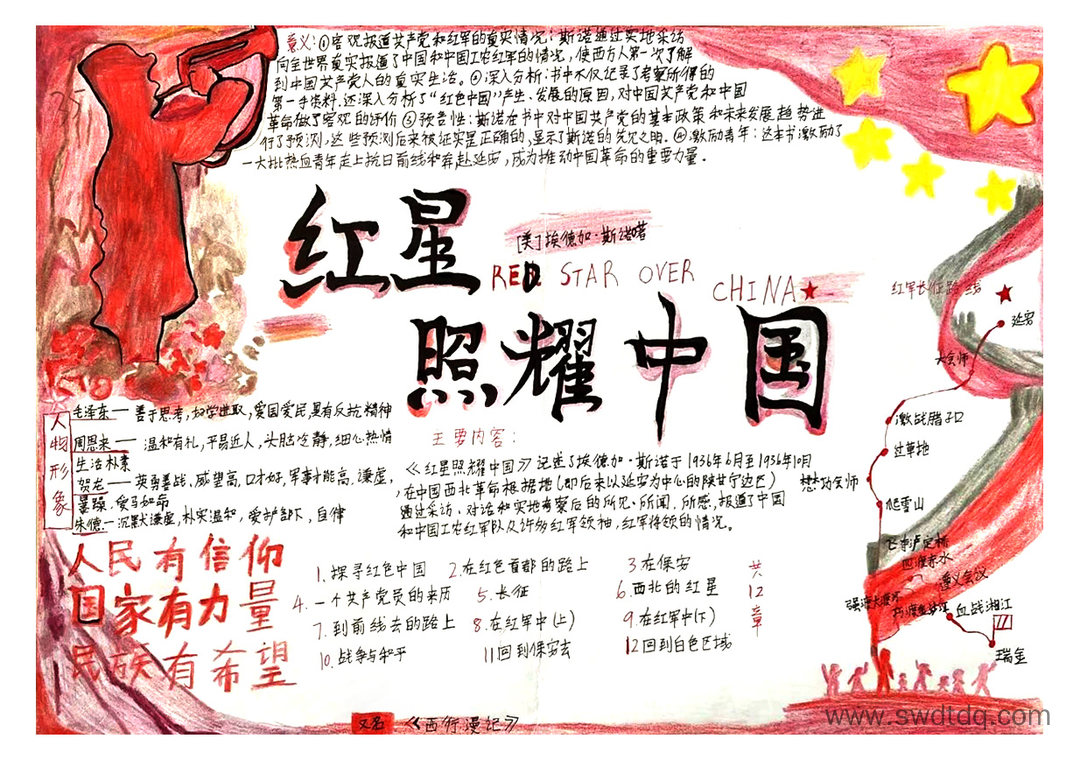 意义：①客观报道共产党和红军的真实情况：斯诺通过实地采访
向全世界真实报道了中国和中国工农红军的情况，使西方人第一次了解
到中国共产党人的真实生活。②深入分析：书中不仅纪录了考察所得的
第一手资料，还深入分析了“红色中国”产生、发展的原因，对中国共产党和中国
革命做了客观的评价③预言性：斯诺在书中对中国共产党的基本政策和未来发展趋势进
行了预测，这些预测后来被证实是正确的，显示了斯诺的先见之明。④激励青年：这本书激励了
一大批热血青年走上抗日前线和奔赴延安，成为推动中国革命的重要力量。
红星
[美]埃德加·斯诺著
RED STAR OVER
CHINA
照耀中国
红军长征路线
延安
大会师
激战腊子口
过草地
懋功会师
爬雪山
飞夺泸定桥
四渡赤水
遵义会议
强渡大渡河
巧渡金沙江
血战湘江
瑞金
人物形象
毛泽东— 善于思考，好学进取，爱国爱民，具有反抗精神
周恩来— 温和有礼，平易近人，头脑冷静，细心热情
生活朴素
贺龙— 英勇善战、威望高，口才好，军事才能高，谦虚，
暴躁，爱马如命
朱德—沉默谦虚，朴实温和，爱护部下，自律
主要内容：
《红星照耀中国》记述了埃德加·斯诺于1936年6月至1936年10月
，在中国西北革命根据地（即后来以延安为中心的陕甘宁边区）
通过采访、对话和实地考察后的所见、所闻、所感，报道了中国
和中国工农红军队及许多红军领袖，红军将领的情况。
人民有信仰
国家有力量
民族有希望
1. 探寻红色中国 2.在红色首都的路上 3在保安
4. 一个共产党员的来历 5. 长征 6.西北的红星
7. 到前线去的路上 8.在红军中(上) 9在红军中(下)
10. 战争与和平 11回到保安去 12回到白色区域
共12章
又名 《西行漫记》
www.swdtdq.com